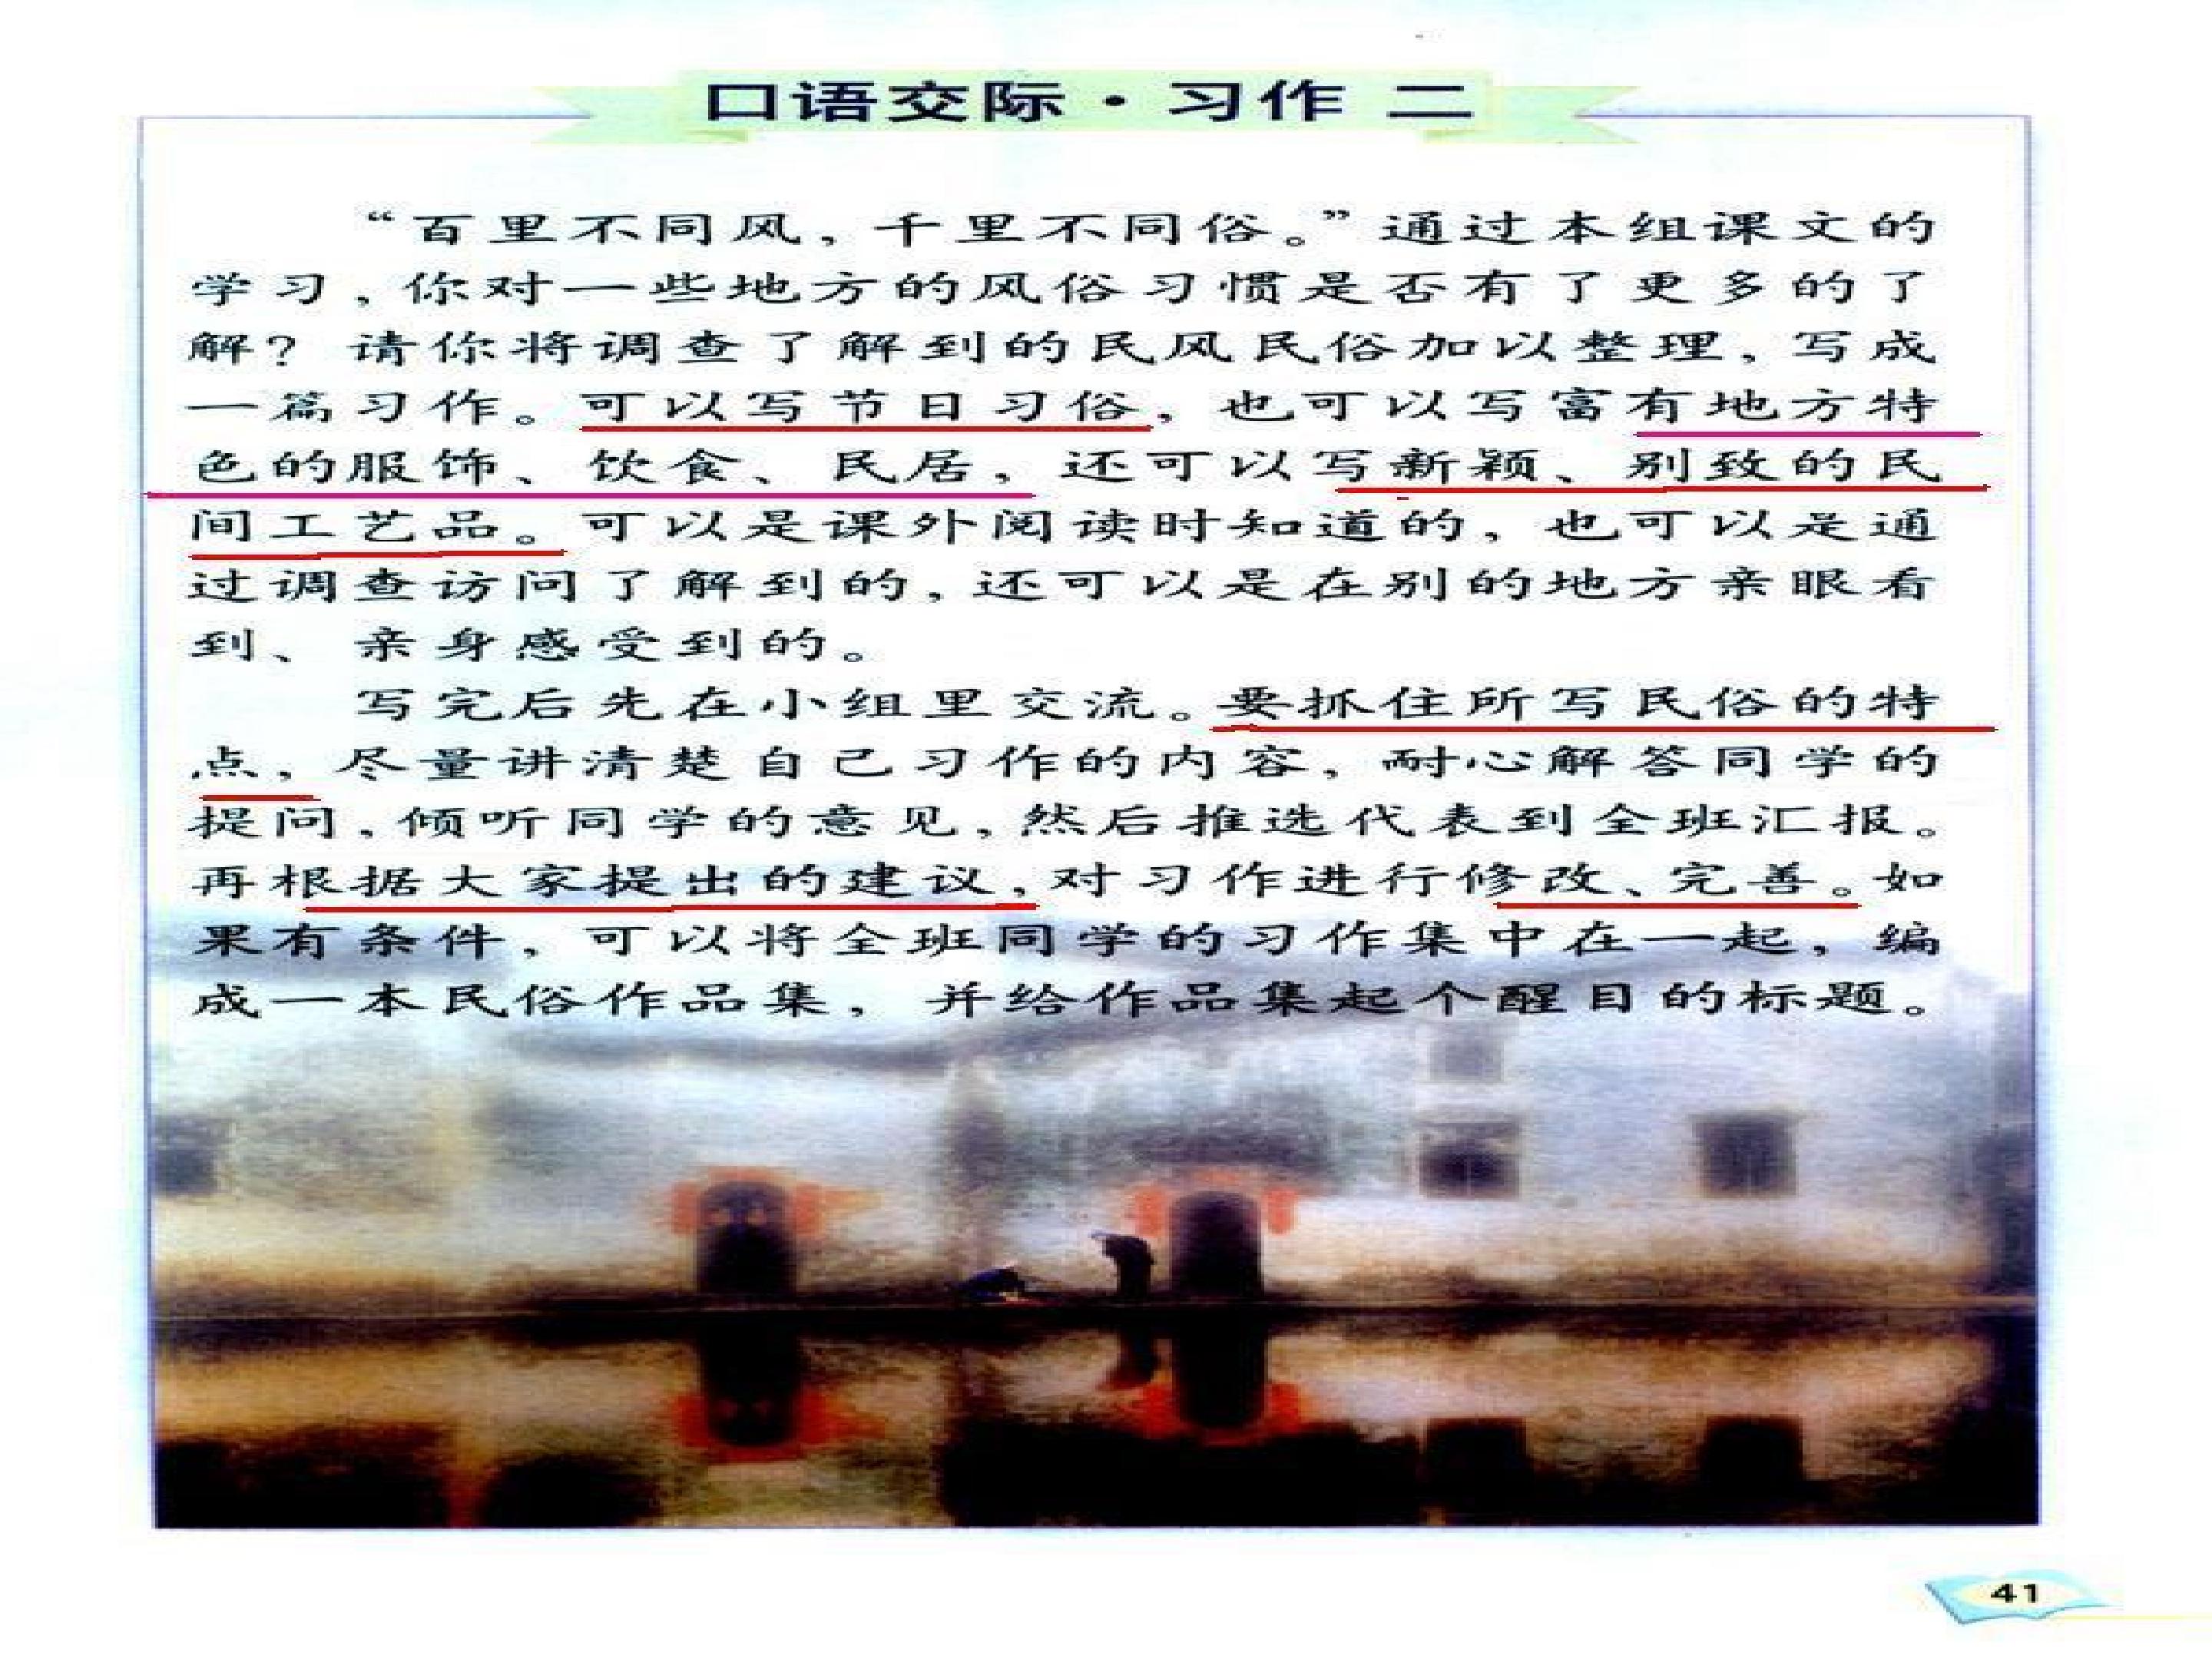 口语交际·习作 二
“百里不同风，千里不同俗。”通过本组课文的
学习，你对一些地方的风俗习惯是否有了更多的了
解？请你将调查了解到的民风民俗加以整理，写成
一篇习作。可以写节日习俗，也可以写富有地方特
色的服饰、饮食、民居，还可以写新颖、别致的民
间工艺品。可以是课外阅读时知道的，也可以是通
过调查访问了解到的，还可以是在别的地方亲眼看
到、亲身感受到的。
写完后先在小组里交流。要抓住所写民俗的特
点，尽量讲清楚自己习作的内容，耐心解答同学的
提问，倾听同学的意见，然后推选代表到全班汇报。
再根据大家提出的建议，对习作进行修改、完善。如
果有条件，可以将全班同学的习作集中在一起，编
成一本民俗作品集，并给作品集起个醒目的标题。
41